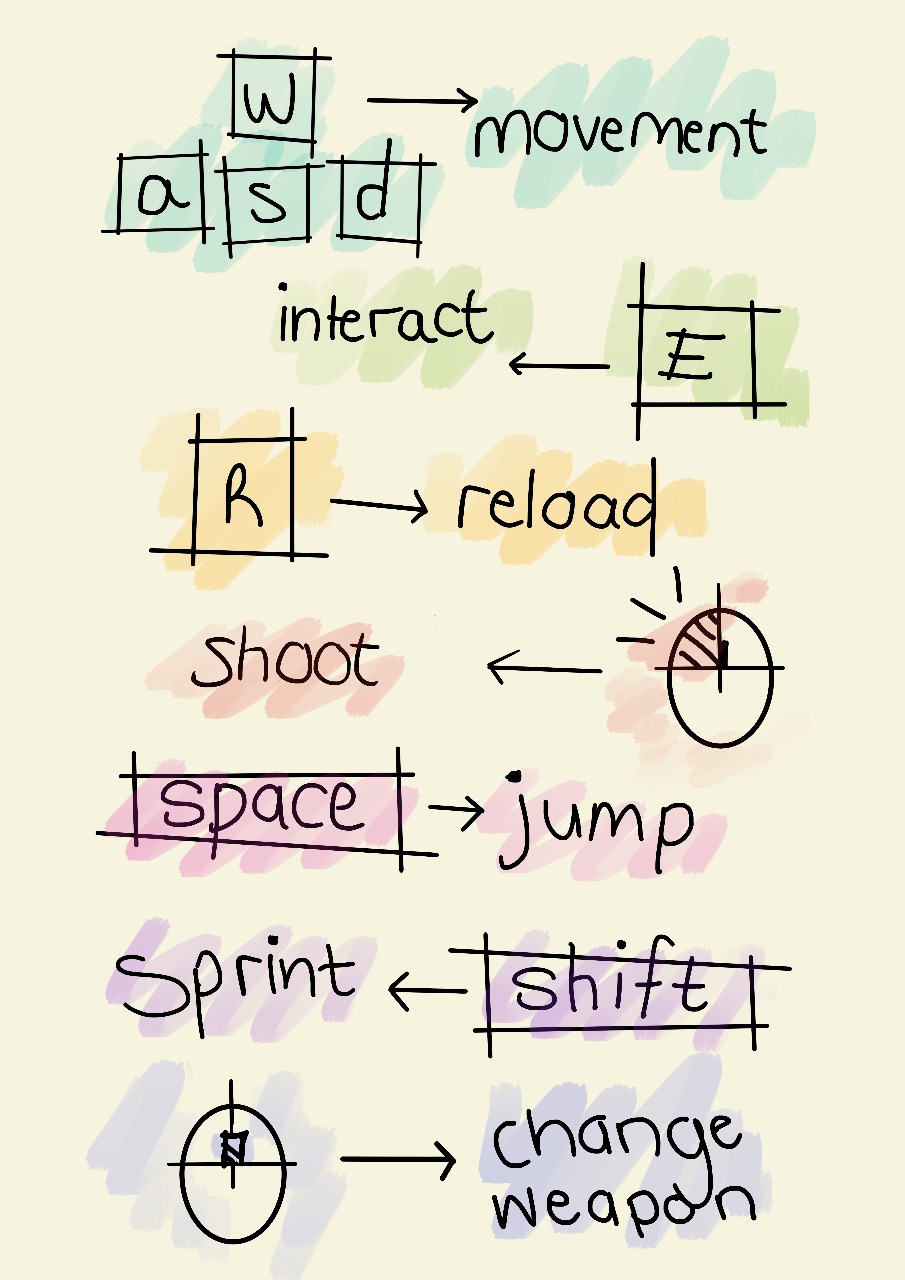 W
movement
a s d
interact
E
R
reload
shoot
space
jump
Sprint
shift
change
weapon